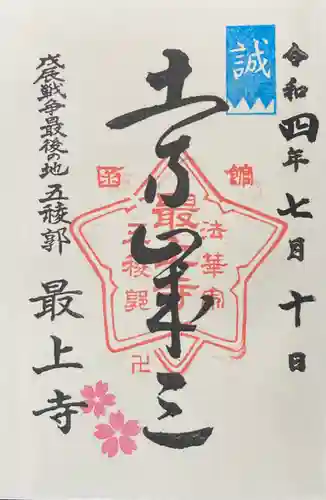 令和四年七月十日
誠
土方歳三
函館
法華宗
最上寺
五稜郭
卍
戊辰戦争最後の地 五稜郭
最上寺